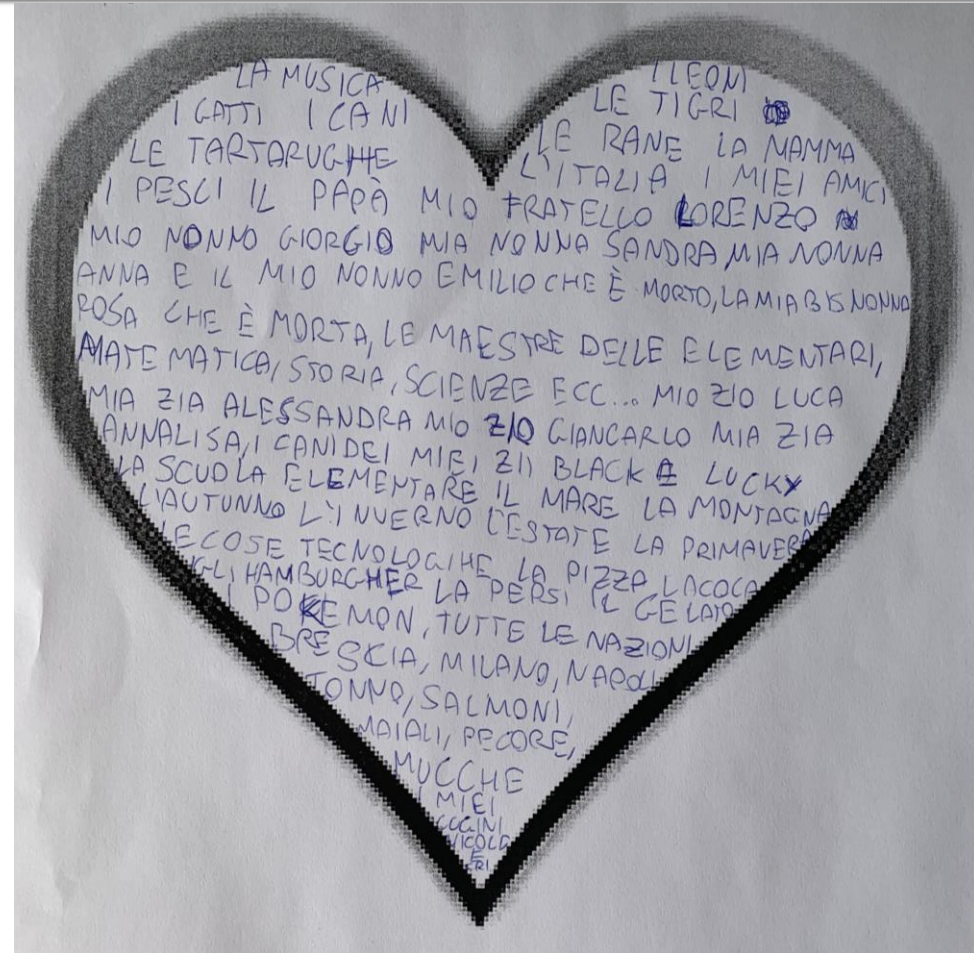 LA MUSICA
I GATTI I CANI
LE TARTARUGHE
I LEONI
LE TIGRI
LE RANE LA MAMMA
L'ITALIA I MIEI AMICI
I PESCI IL PAPÀ MIO FRATELLO LORENZO
MIO NONNO GIORGIO MIA NONNA SANDRA MIA NONNA
ANNA E IL MIO NONNO EMILIO CHE È MORTO, LA MIA BISNONNA
ROSA CHE È MORTA, LE MAESTRE DELLE ELEMENTARI,
MATEMATICA, STORIA, SCIENZE ECC... MIO ZIO LUCA
MIA ZIA ALESSANDRA MIO ZIO GIANCARLO MIA ZIA
ANNALISA, I CANI DEI MIEI ZII BLACK E LUCKY
LA SCUOLA ELEMENTARE IL MARE LA MONTAGNA
L'AUTUNNO L'INVERNO L'ESTATE LA PRIMAVERA
LE COSE TECNOLOGIHE LA PIZZA LA COCA
GLI HAMBURGHER LA PEPSI IL GELATO
I POKEMON, TUTTE LE NAZIONI
BRESCIA, MILANO, NAPOLI
TONNO, SALMONI,
MAIALI, PECORE,
MUCCHE
I MIEI
CUGINI
NICOLO
E